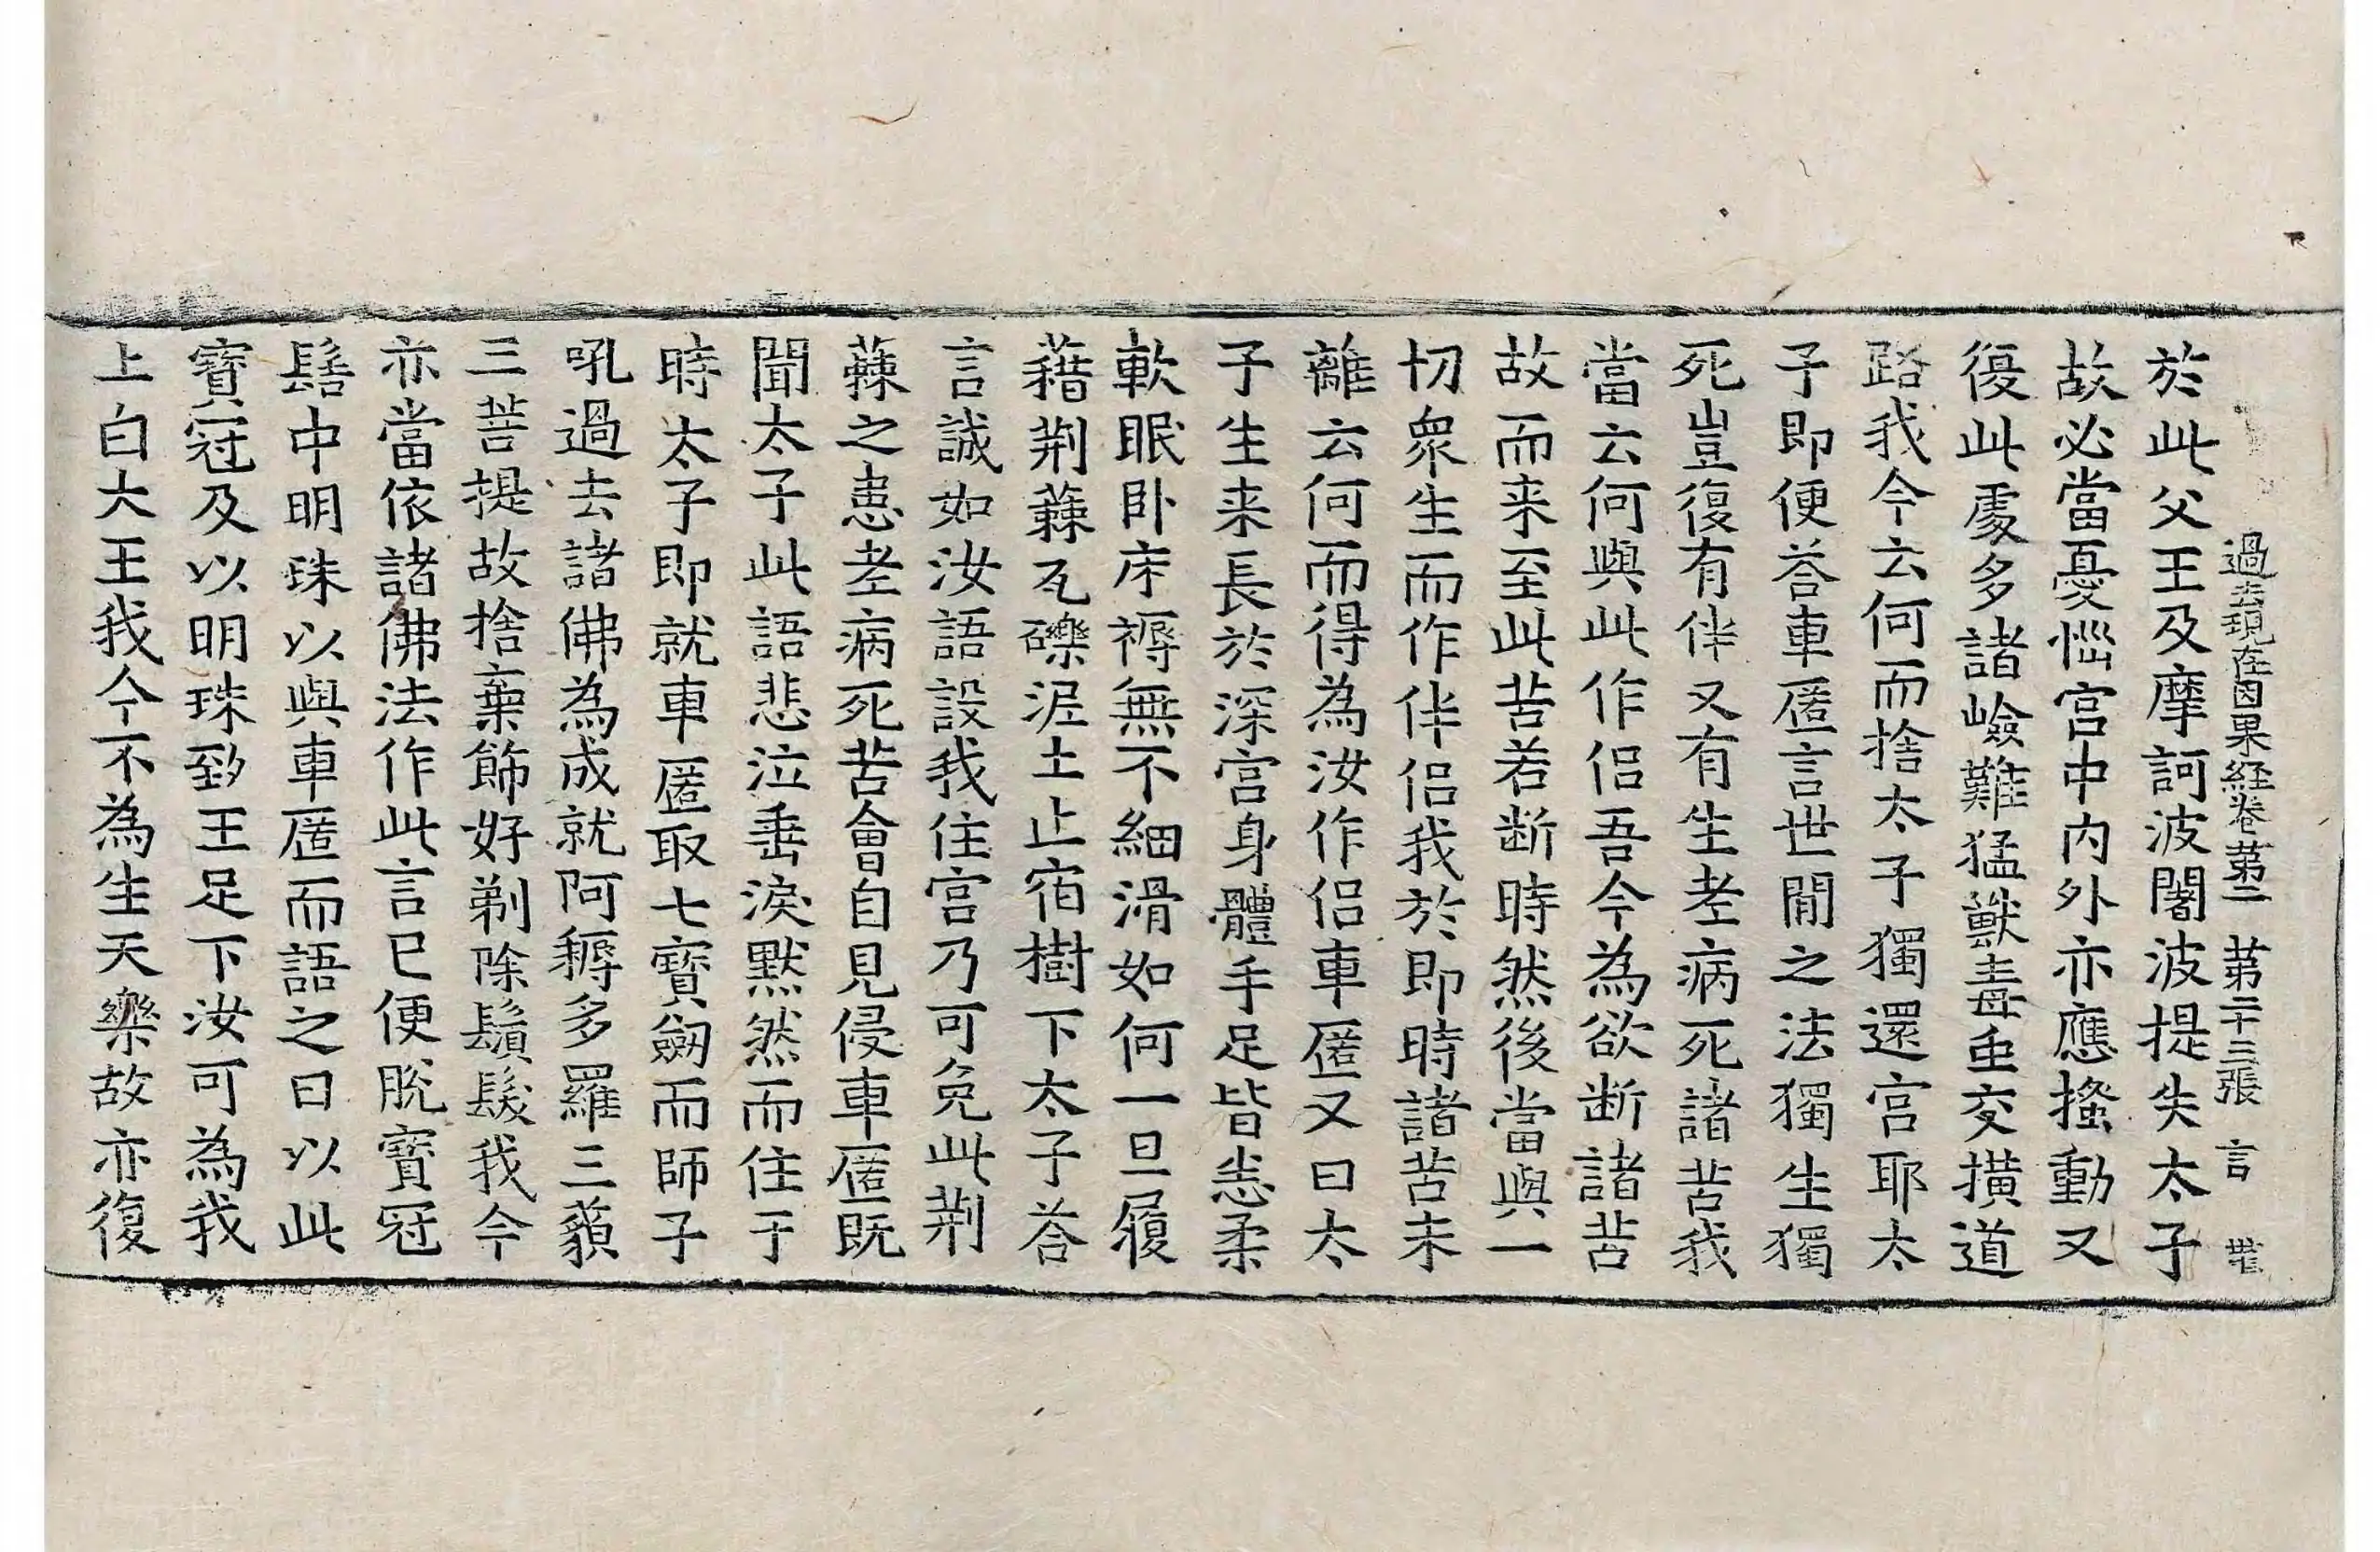 過去現在因果経卷苐二 苐二十三張 言
於此父王及摩訶波闍波提失太子
故必當憂惱宫中内外亦應搔動又
復此處多諸嶮難猛獸毒䖝交横道
路我今云何而捨太子獨還宫耶太
子即便荅車匿言世間之法獨生獨
死豈復有伴又有生老病死諸苦我
當云何與此作侣吾今為欲断諸苦
故而来至此苦若断時然後當與一
切衆生而作伴侣我於即時諸苦未
離云何而得為汝作侣車匿又曰太
子生来長於深宫身體手足皆悉柔
軟眠卧床褥無不細滑如何一旦履
藉荆蕀瓦礫泥土止宿樹下太子荅
言誠如汝語設我住宫乃可免此荆
蕀之患老病死苦會自見侵車匿既
聞太子此語悲泣垂淚默然而住于
時太子即就車匿取七寳劔而師子
吼過去諸佛為成就阿耨多羅三藐
三菩提故捨棄飾好剃除鬚髮我今
亦當依諸佛法作此言已便脱寳冠
髻中明珠以與車匿而語之曰以此
寳冠及以明珠致王足下汝可為我
上白大王我今不為生天樂故亦復